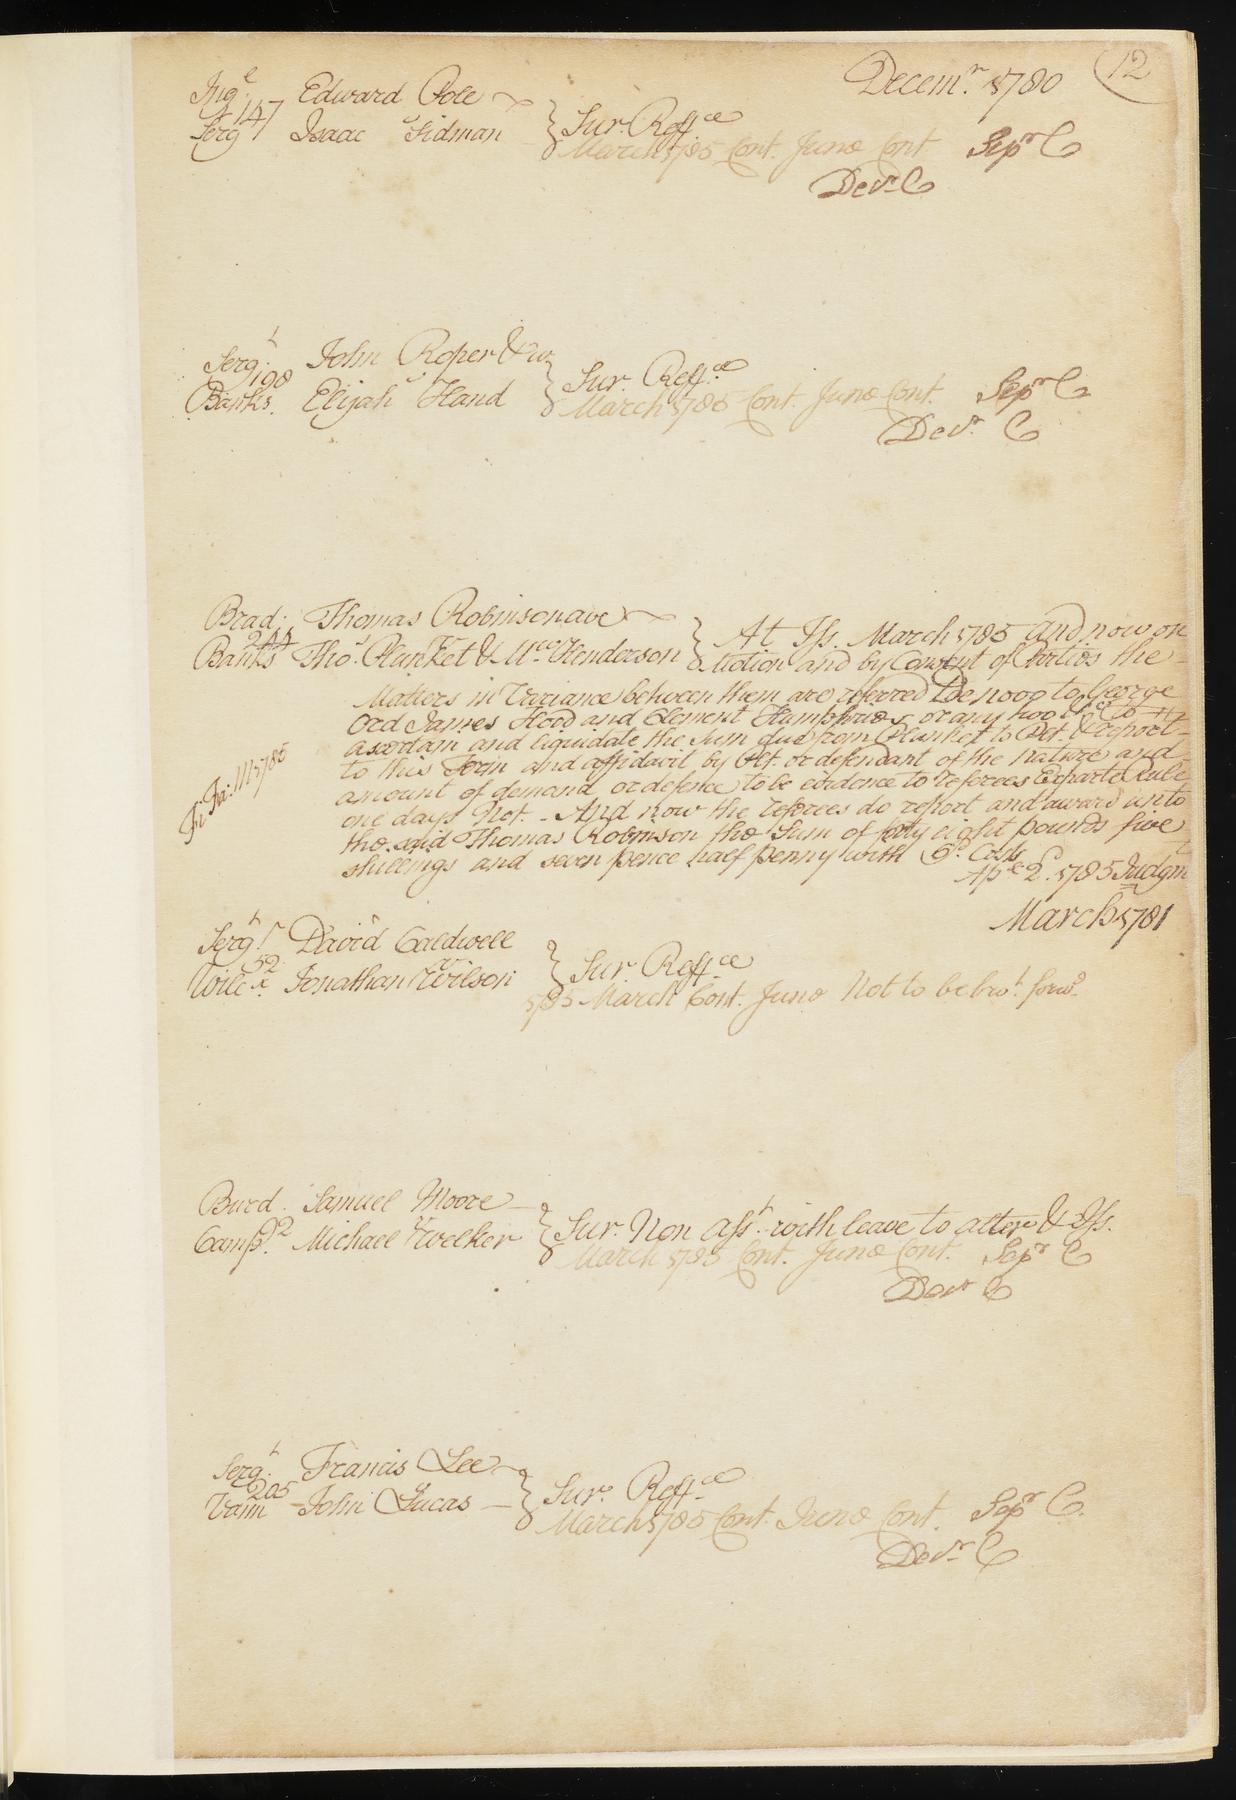 12
Decemr. 1780
Inge. Edward Pole
147
Sergt Isaac Sidman } Sur. Reffce
March 1785 Cont. June Cont Sepr C
Decr C
Sergt. John Roper & ux
198
Banks. Elijah Hand } Sur. Reffce
March 1785 Cont. June Cont. Sepr C
Decr. C
Brad. Thomas Robinson
244
Banks Thos. Plunket & Henderson } At Iss. March 1785 and now on
Motion and by Consent of Parties the
Matters in Variance between them are referred De novo to George
Ord James Hood and Clement Humphries or any two to
ascertain and liquidate the sum due from Plunket to & report
to this Term and affidavit by Plt. or defendant of the nature and
amount of demand or defence to be evidence to referees Exparte Rule
one days Not. - And now the referees do report and award unto
the said Thomas Robinson the Sum of forty eight pounds five
shillings and seven pence half penny with 6d. Costs
2d. 1785 Judgmt
Fi Fa: 1785
March 1781
Sergt David Caldwell
52
Wilcx. Jonathan Wilson } Sur Reffce
1785 March Cont. June Not to be brot. forwd
Burd. Samuel Moore
2
Camp. Michael Welker } Sur. Non Asst. with leave to alter & Iss.
March 1785 Cont. June Cont. Sepr C
Decr C
Sergt. Francis Lee
205
Vann John Lucas } Sur. Reffce
March 1785 Cont. June Cont. Sepr C.
Decr C